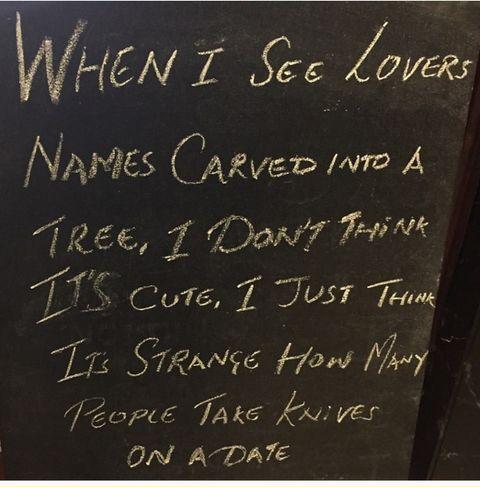 WHEN I SEE LOVERS
NAMES CARVED INTO A
TREE, I DON'T THINK
IT'S CUTE, I JUST THINK
ITS STRANGE HOW MANY
PEOPLE TAKE KNIVES
ON A DATE